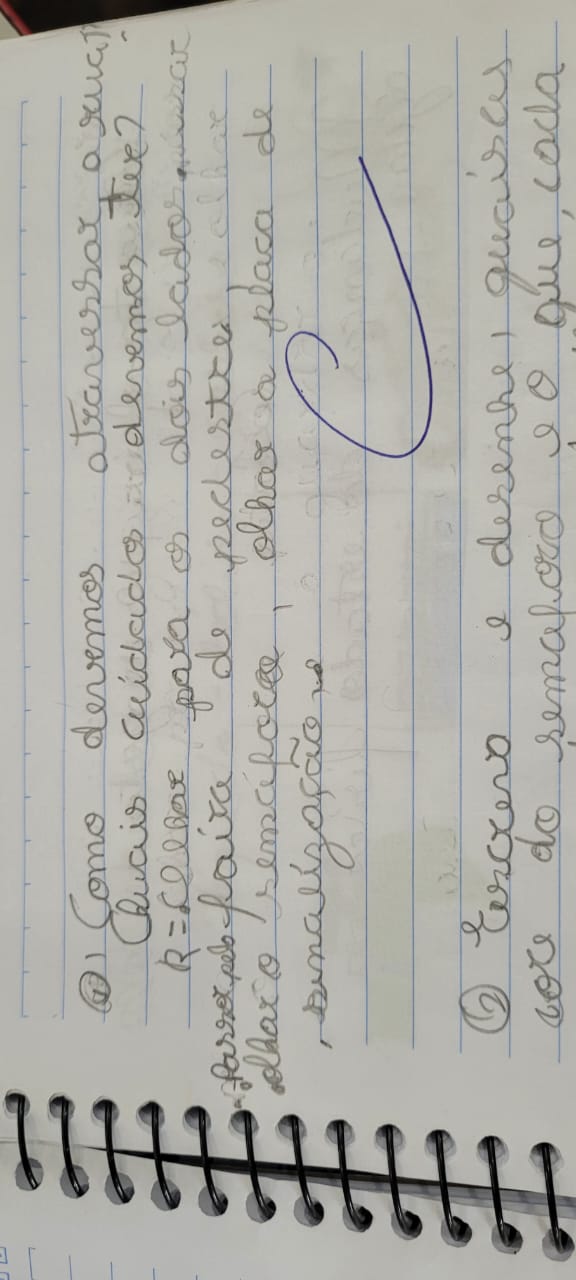 ①, Como devemos atravessar a rua?
Quais cuidados devemos Ter?
R= Olhar para os dois lados,
Passar pelo faixa de pedestre,
olhar o semáforo, olhar a placa de
sinalização
② Escreva e desenhe, quais as
core do semaforo e o que, cada